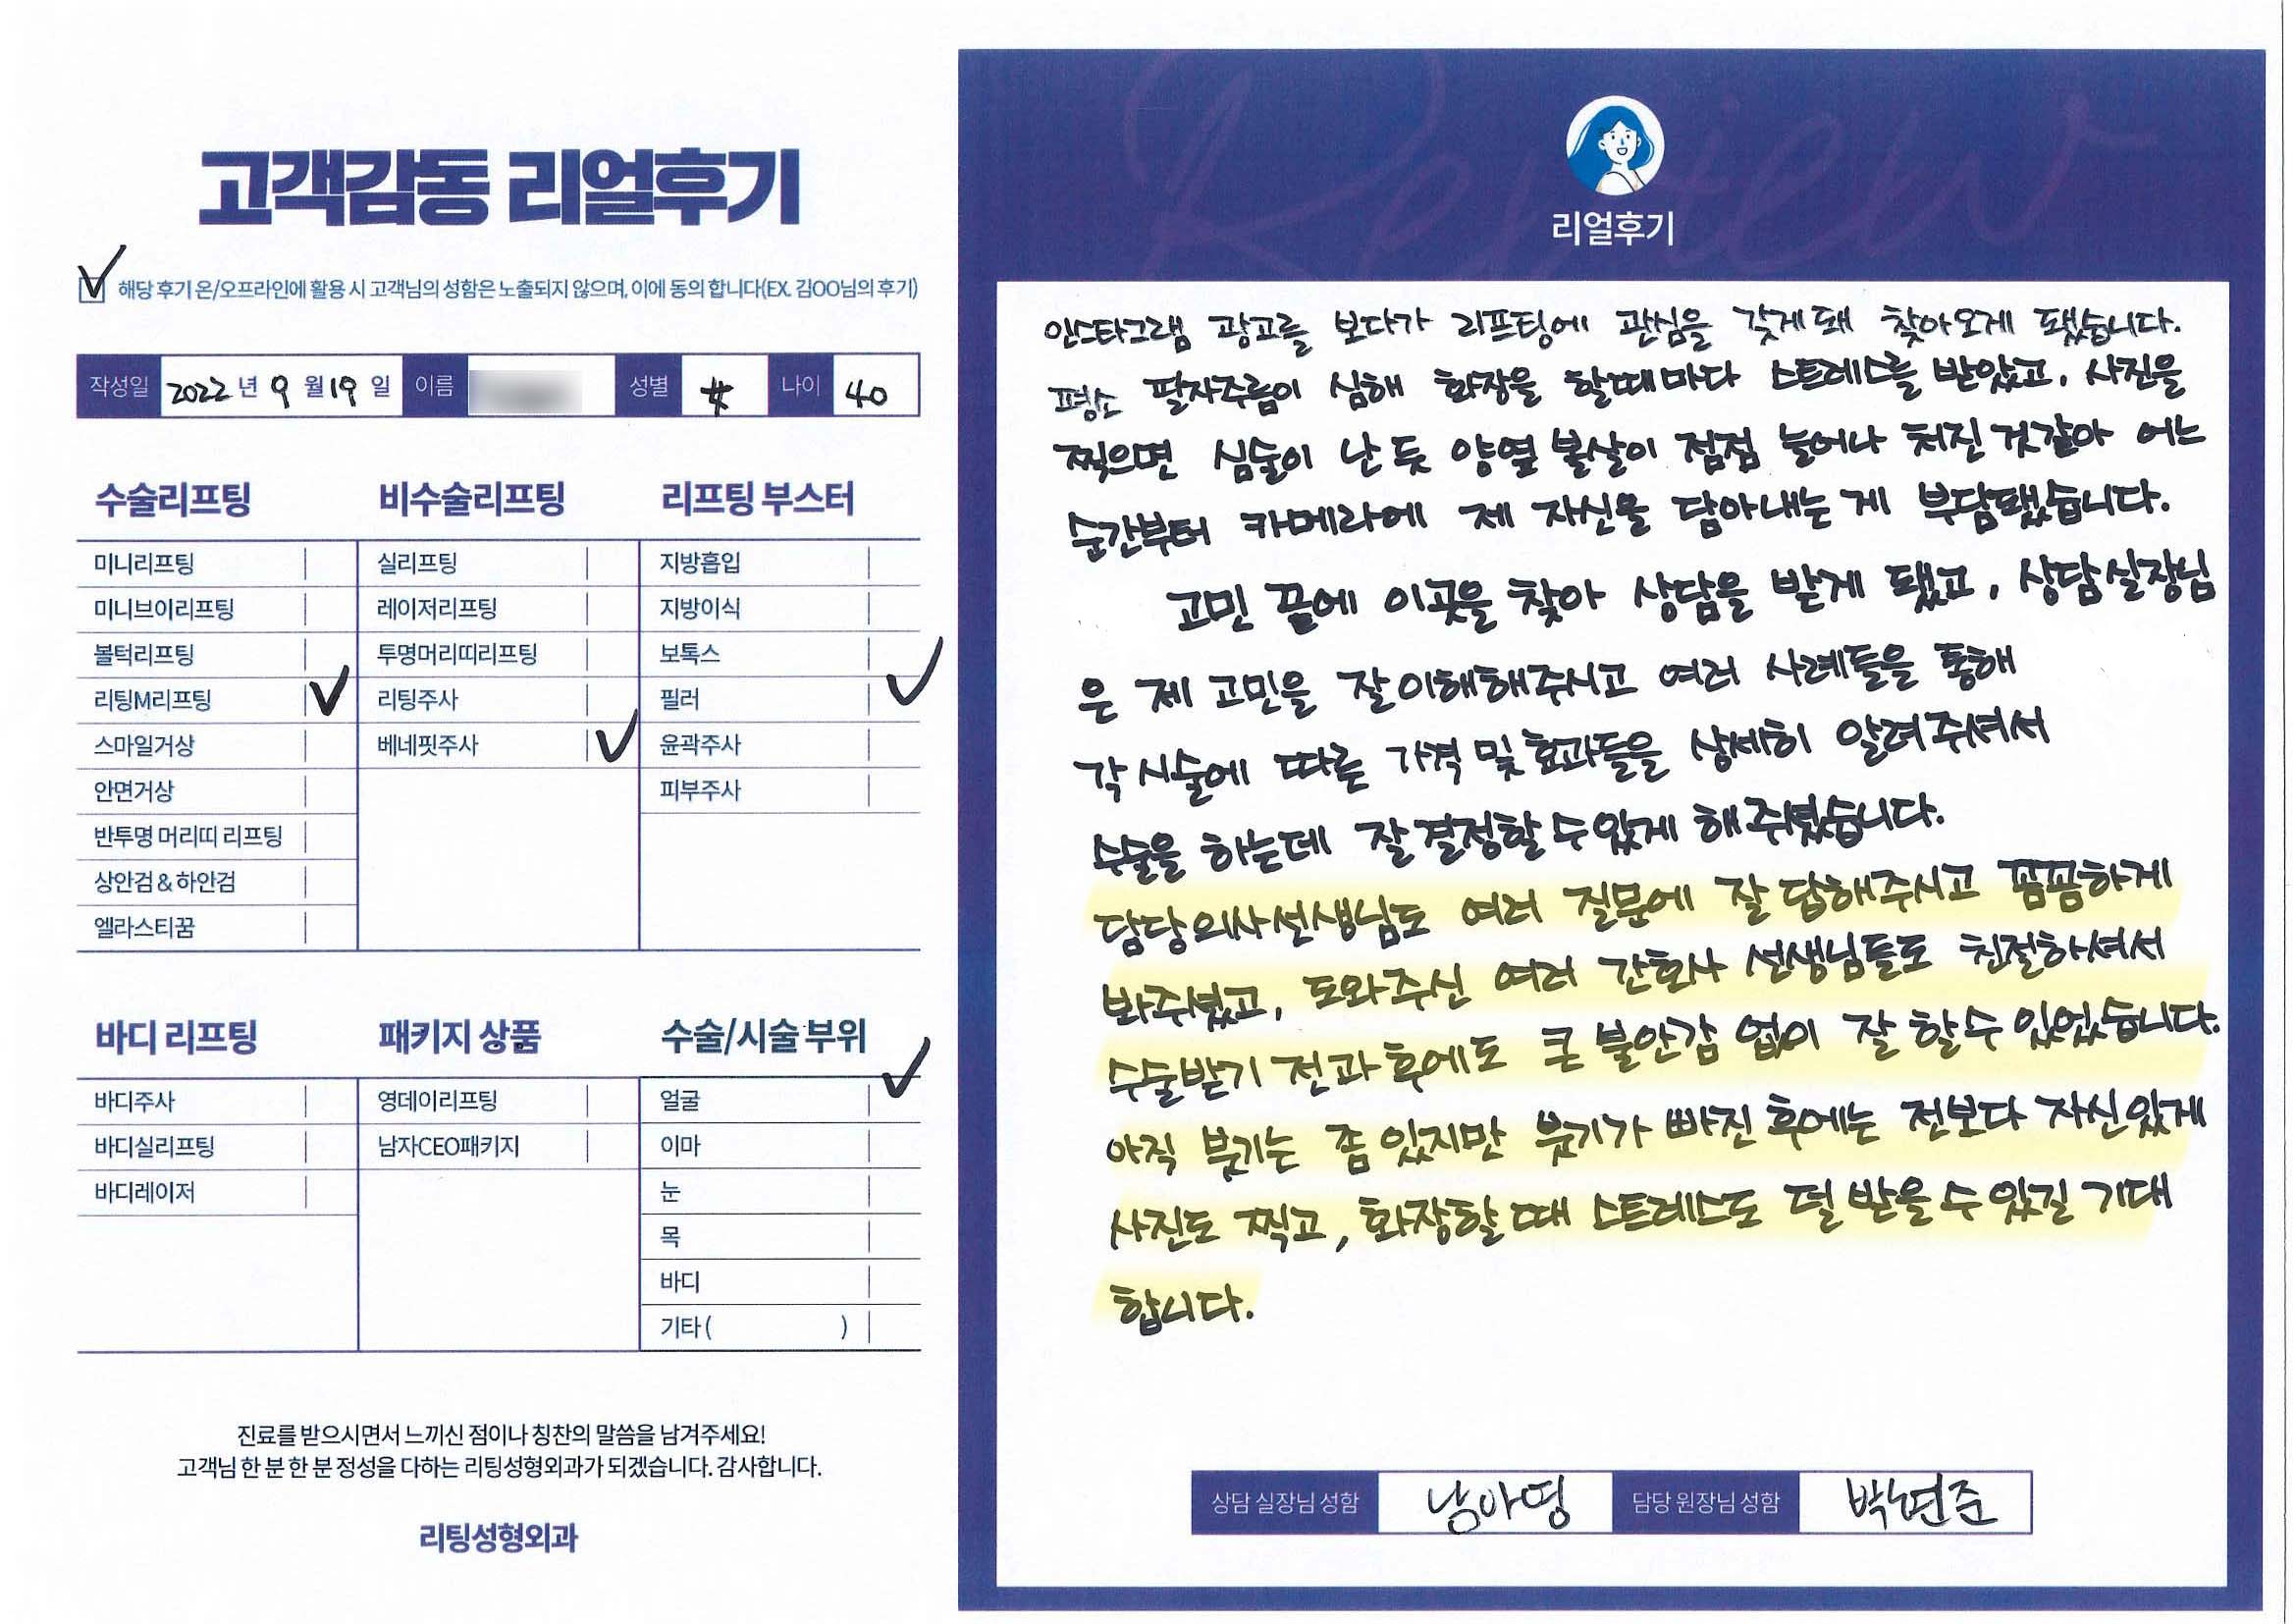 고객감동 리얼후기
해당 후기 온/오프라인에 활용 시 고객님의 성함은 노출되지 않으며, 이에 동의 합니다(EX. 김OO님의 후기)
작성일 2022 년 9 월 19 일 이름 성별 女 나이 40
수술리프팅
미니리프팅
미니브이리프팅
볼턱리프팅
리팅M리프팅
스마일거상
안면거상
반투명 머리띠 리프팅
상안검 & 하안검
엘라스티꿈
비수술리프팅
실리프팅
레이저리프팅
투명머리띠리프팅
리팅주사
베네핏주사
리프팅 부스터
지방흡입
지방이식
보톡스
필러
윤곽주사
피부주사
바디 리프팅
바디주사
바디실리프팅
바디레이저
패키지 상품
영데이리프팅
남자CEO패키지
수술/시술 부위
얼굴
이마
눈
목
바디
기타 ( )
진료를 받으시면서 느끼신 점이나 칭찬의 말씀을 남겨주세요!
고객님 한 분 한 분 정성을 다하는 리팅성형외과가 되겠습니다. 감사합니다.
리팅성형외과
Review
리얼후기
인스타그램 광고를 보다가 리프팅에 관심을 갖게돼 찾아오게 됐습니다.
평소 팔자주름이 심해 화장을 할때마다 스트레스를 받았고, 사진을
찍으면 심술이 난 듯 양옆 볼살이 점점 늘어나 처진 것같아 어느
순간부터 카메라에 제 자신을 담아내는 게 부담됐습니다.
고민 끝에 이곳을 찾아 상담을 받게 됐고, 상담실장님
은 제 고민을 잘 이해해주시고 여러 사례들을 통해
각 시술에 따른 가격 및 효과들을 상세히 알려주셔서
수술을 하는데 잘 결정할 수 있게 해주셨습니다.
담당의사선생님도 여러 질문에 잘 답해주시고 꼼꼼하게
봐주셨고, 도와주신 여러 간호사 선생님들도 친절하셔서
수술받기 전과 후에도 큰 불안감 없이 잘 할수 있었습니다.
아직 붓기는 좀 있지만 붓기가 빠진 후에는 전보다 자신있게
사진도 찍고, 화장할 때 스트레스도 덜 받을 수 있길 기대
합니다.
상담 실장님 성함 남아영 담당 원장님 성함 박현준